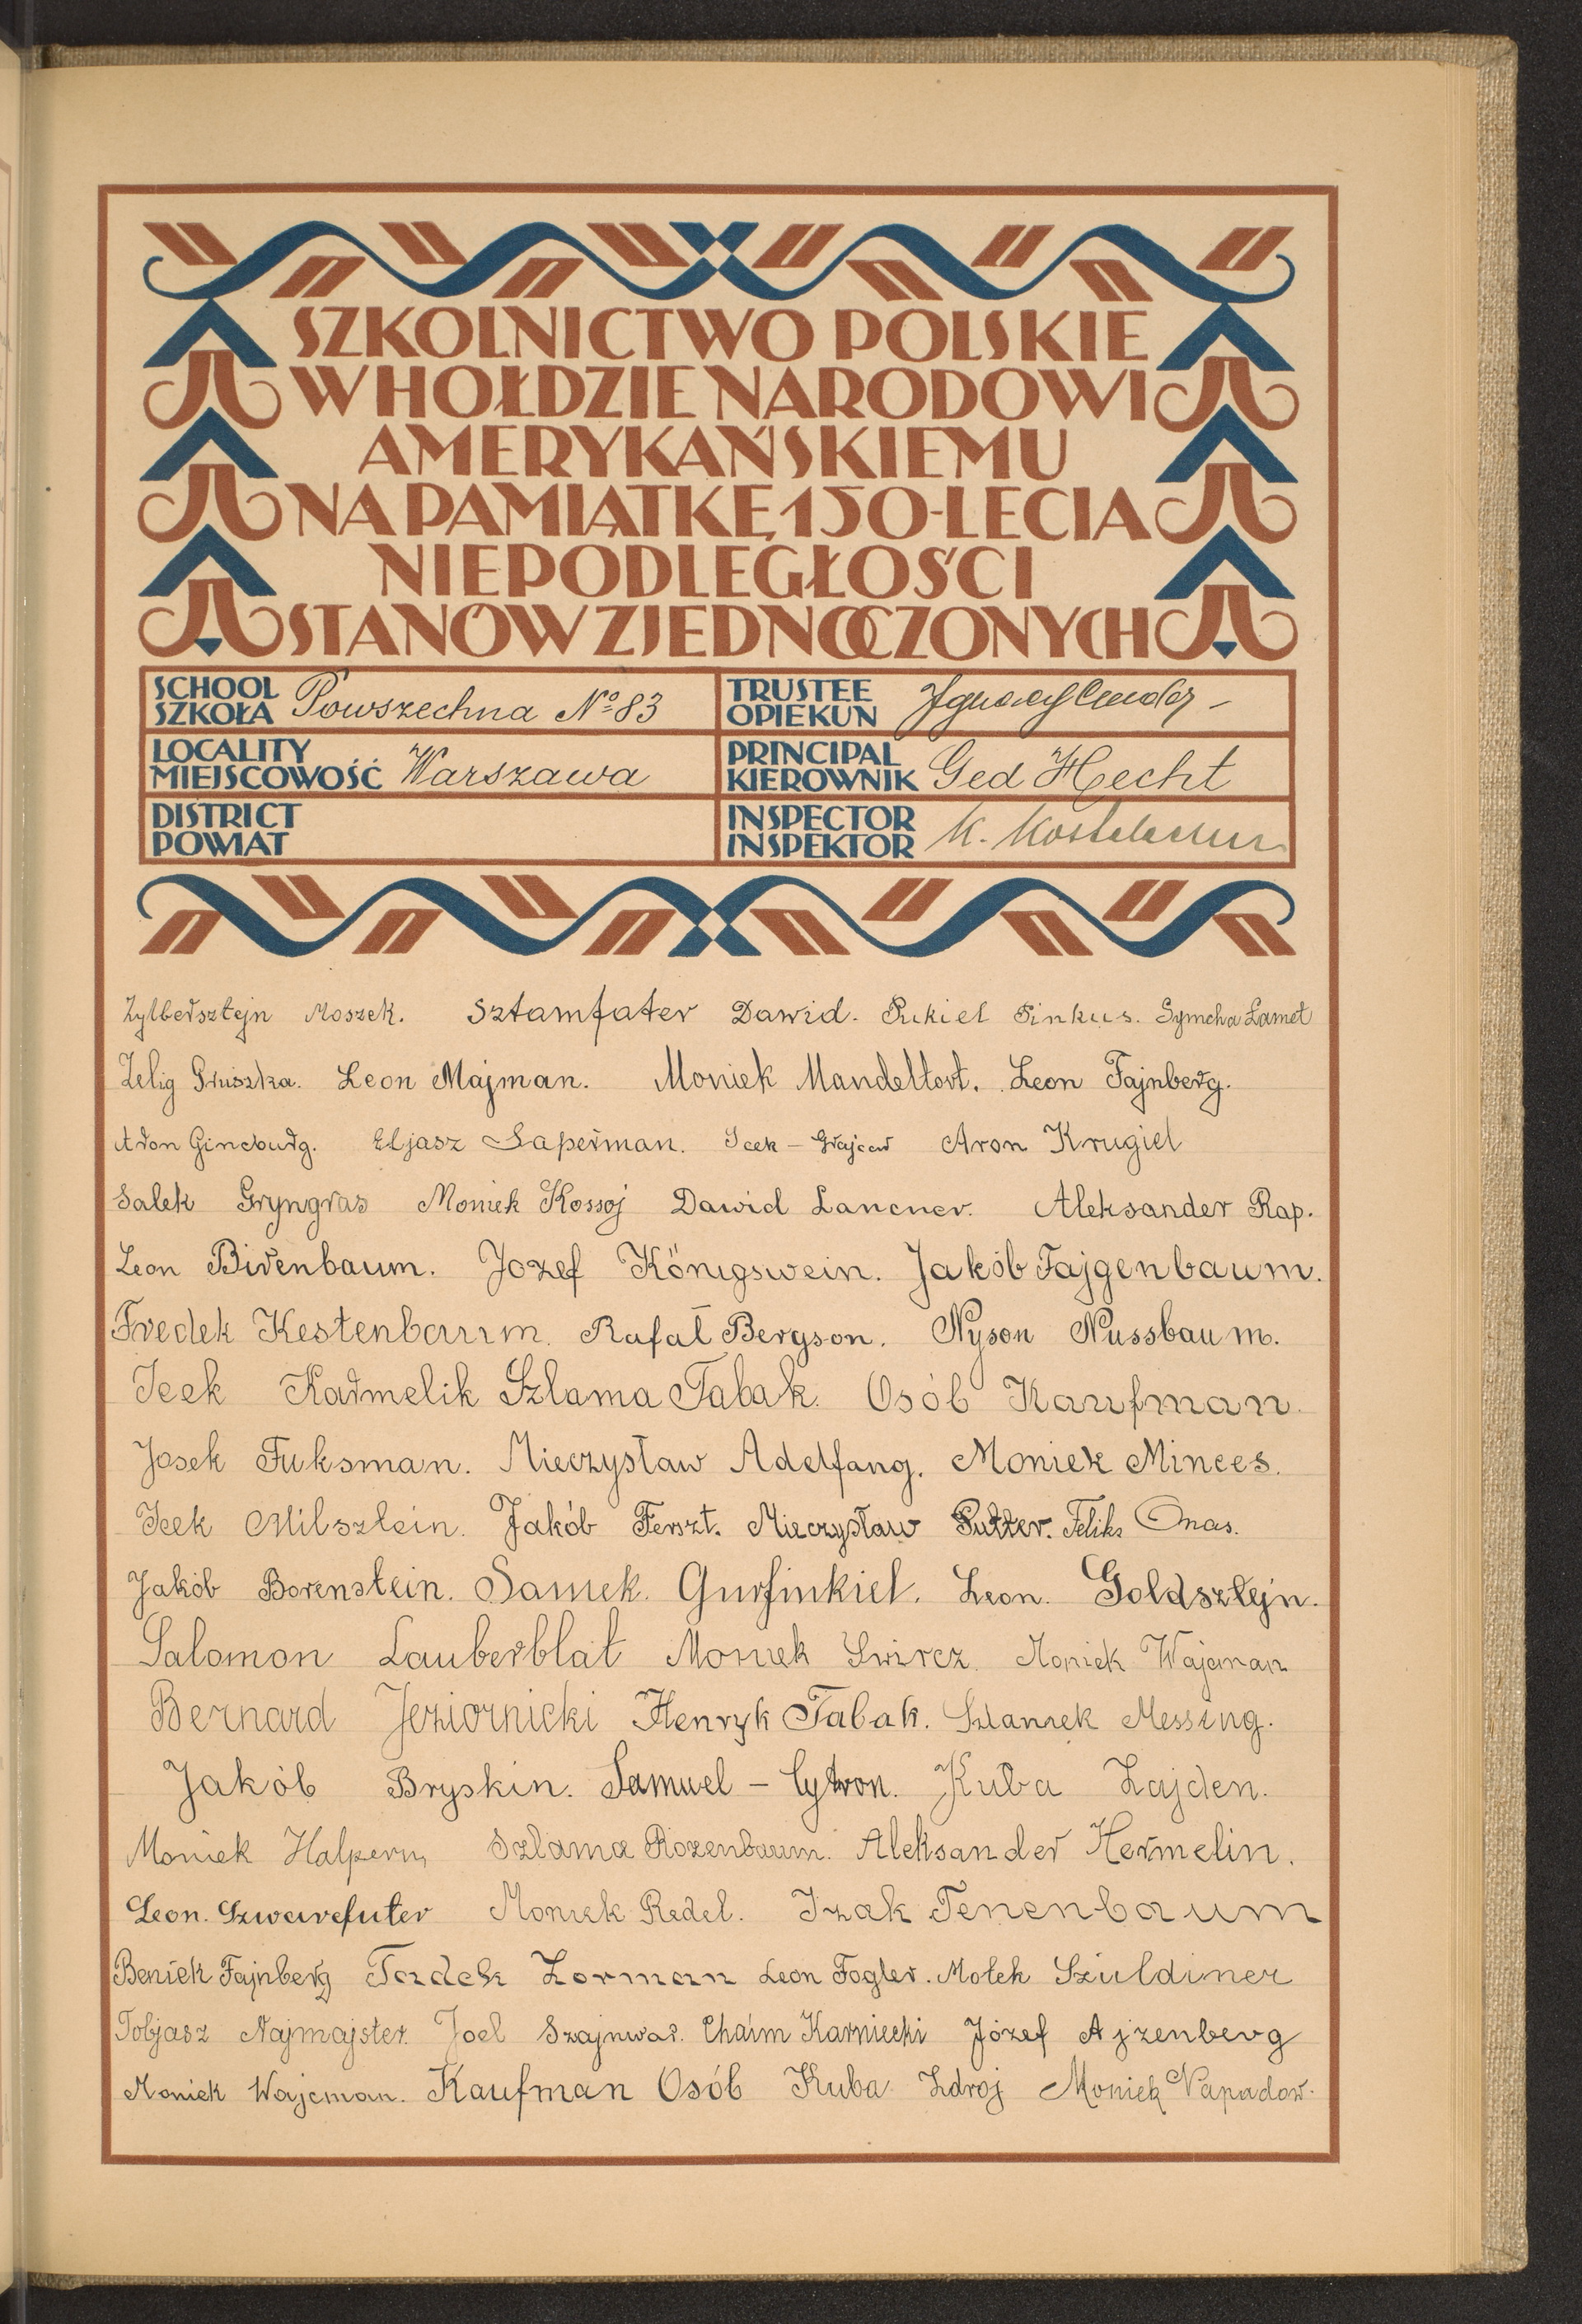 SZKOLNICTWO POLSKIE
W HOŁDZIE NARODOWI
AMERYKAŃSKIEMU
NA PAMIĄTKĘ 150-LECIA
NIEPODLEGŁOŚCI
STANÓW ZJEDNOCZONYCH
SCHOOL SZKOŁA Powszechna Nº 83
TRUSTEE OPIEKUN
LOCALITY MIEJSCOWOŚĆ Warszawa
PRINCIPAL KIEROWNIK Ged Hecht
DISTRICT POWIAT
INSPECTOR INSPEKTOR K.
Zylbersztejn Moszek. Sztamfater Dawid. Pukiel Pinkus. Symcha Lamet
Zelig Gruszka. Leon Majman. Moniek Mandeltort. Leon Fajnberg.
Aron Gincburg. Eljasz Saperman. Icek - Grajcar Aron Krugiel
Salek Gryngras Moniek Kossoj Dawid Lancner. Aleksander Rap.
Leon Birenbaum. Jozef Königswein. Jakób Fajgenbaum.
Fredek Kestenbaum. Rafał Bergson. Nyson Nussbaum.
Icek Karmelik Szlama Tabak. Osób Kaufman.
Josek Fuksman. Mieczysław Adelfang. Moniek Minces.
Icek Milsztein. Jakób Ferszt. Mieczysław Putter. Feliks Onas.
Jakób Borenstein. Samek. Gurfinkiel. Leon. Goldsztejn.
Salomon Lauberblat Moniek Swircz. Moniek Wajcman
Bernard Jeziornicki Henryk Tabak. Szlamek Messing.
Jakób Bryskin. Samuel - Cytron. Kuba Zajden.
Moniek Halpern, Szlama Rozenbaum. Aleksander Hermelin.
Leon. Szwarcfuter Moniek Redel. Izak Tenenbaum
Beniek Fajnberg Tadek Lorman Leon Fogler. Motek Sziuldiner
Tobjasz Najmajster. Joel Szajnwar. Chaim Karniecki Józef Ajzenberg
Moniek Wajcman. Kaufman Osób Kuba Zdroj Moniek Napadow.